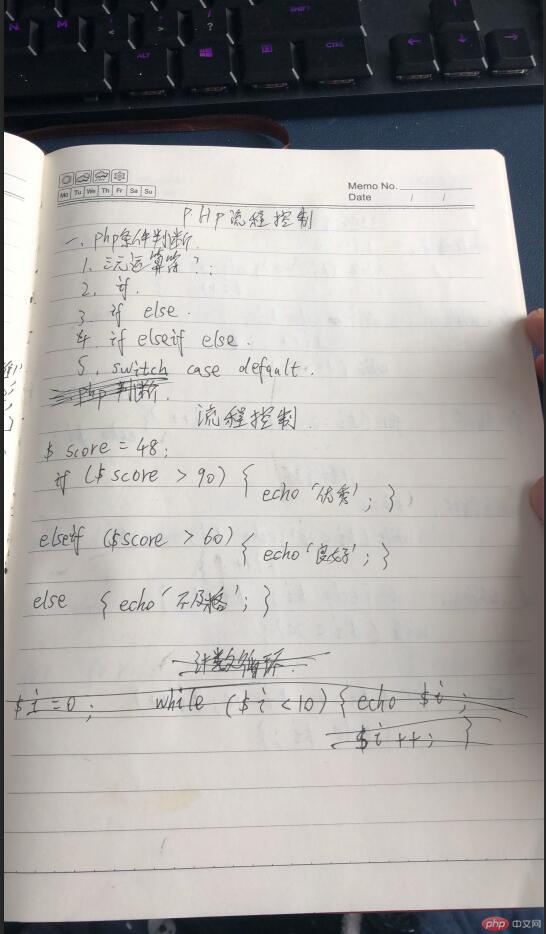 N M < > ? / SHIFT
ALT CTRL
Mo Tu We Th Fr Sa Su
Memo No.
Date / /
PHP流程控制
一、php条件判断.
1. 三元运算符 ? :
2. if.
3. if else.
4. if elseif else.
5. switch case default.
php判断.
流程控制
$ score = 48;
if ($ score > 90) { echo '优秀'; }
elseif ($score > 60) { echo '良好'; }
else { echo '不及格'; }
计数循环.
$ i = 0; while ($ i < 10) { echo $i;
$ i ++; }
php 中文网